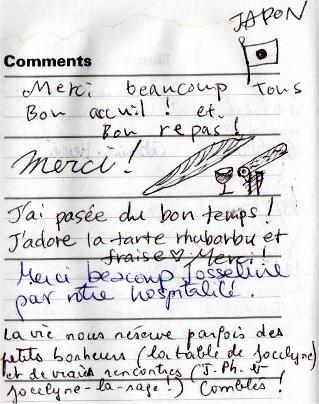 JAPON
Comments
Merci beaucoup Tous
Bon accuil! et.
Bon repas!
Merci!
J'ai pasée du bon temps!
J'adore la tarte rhubarbu et
fraise ♡ Merci!
Merci beacoup Josseline
par votre hospitalité.
La vie nous réserve parfois des
petits bonheurs (la table de Jocelyne)
et de vraies rencontres (J. Ph. et
Jocelyne-la-sage!) Comblés!